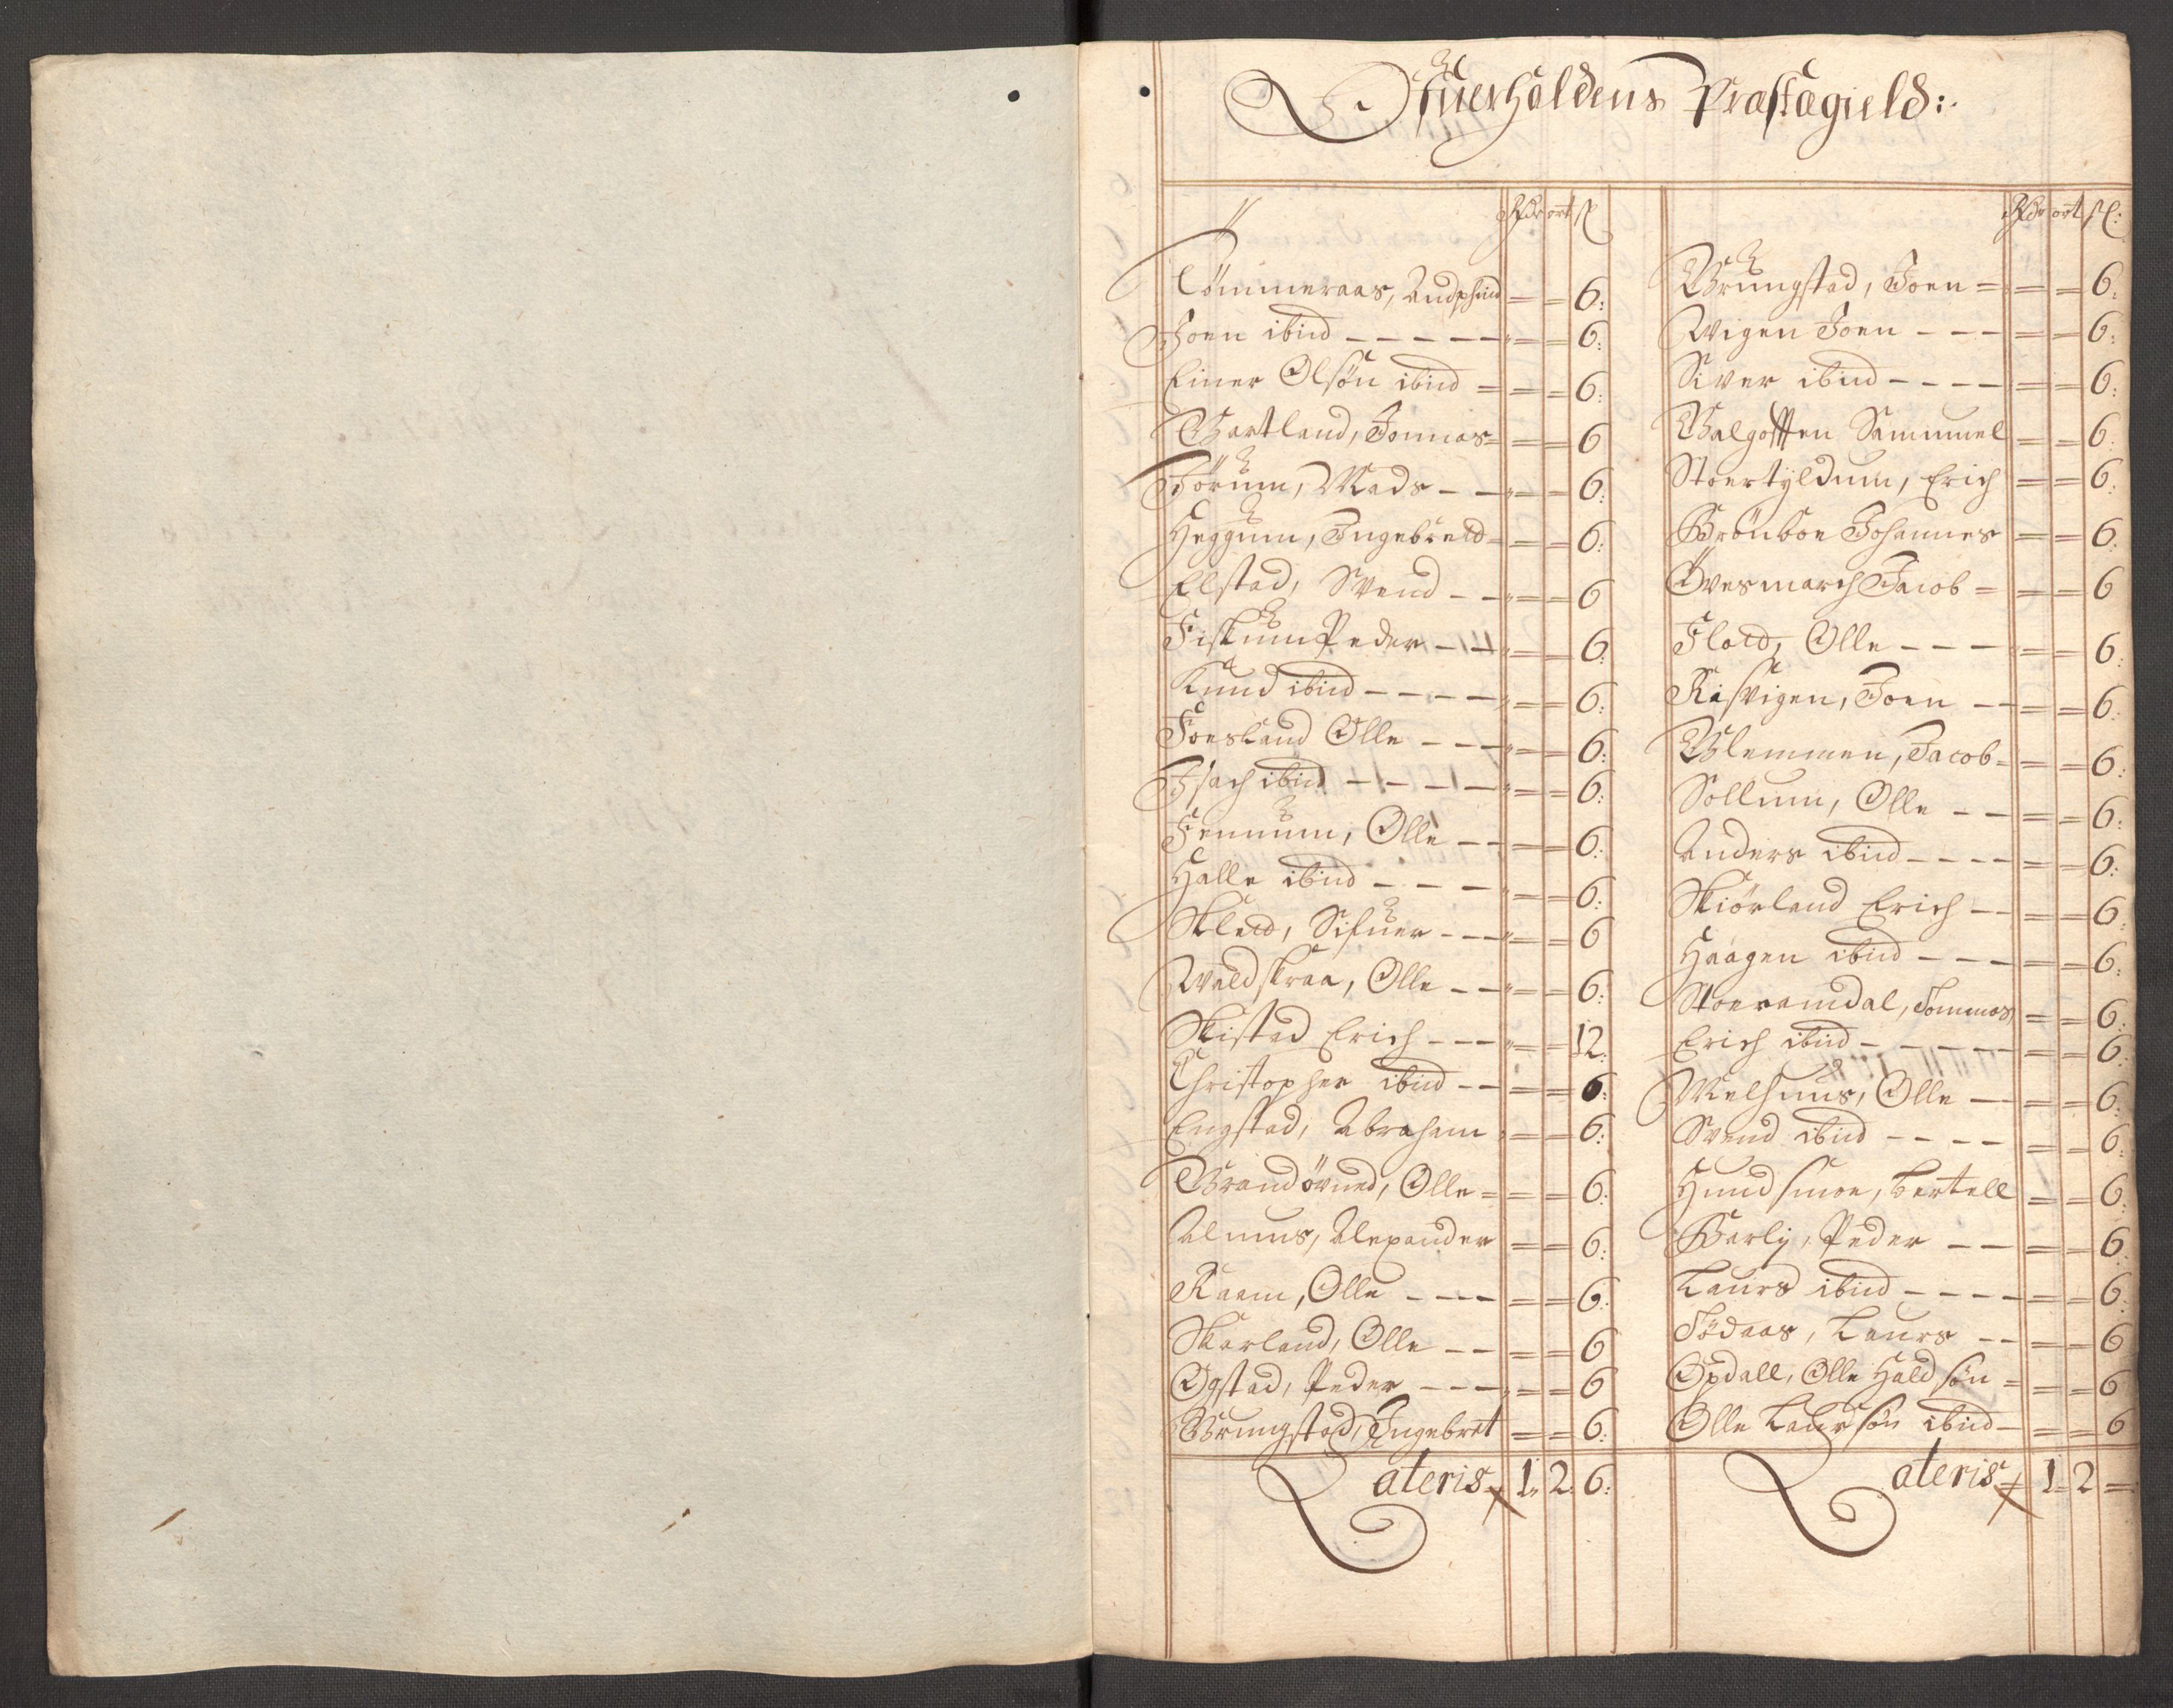 Ofuerhaldens Præstægield:
Rdr ort sl
Tömmeraas, Audphind = = 6:
Joen ibid - - - - - = = 6:
Einer Olsön ibid = = = 6:
Gartland, Jonnas = = = 6
Jörum, Mads - - = = 6:
Heggum, Ingebreld = = 6:
Elstad, Svend - - = = 6
Fiskum Peder - - = = 6:
Knud ibid - - - - = = 6:
Foesland Olle - - - = = 6:
Isach ibid - - - - = = 6:
Femmum, Olle - - = = 6:
Halle ibid - - - = = 6:
Skleed, Sifuer - - - = = 6
Waldskraa, Olle - - = = 6:
Skistad Erich - - - = = 12:
Christopher ibid - - = = 6:
Engstad, Abraham = = 6:
Grandövned, Olle = = = 6:
Almus, Alexander = = 6:
Raam, Olle - - - = = 6:
Skarland, Olle - - = = 6
Ogstad, Peder - - - = = 6
Grungstad, Ingebret = = 6:
Lateris 1: 2: 6:
Rdr ort sl:
Grungstad, Joen = = = 6:
Wigen Joen - - - = = 6:
Siver ibid - - - - = = 6:
Galgofften Sammuel = = 6:
Stoertyldum, Erich = = 6:
Grönboe Johannes = = 6:
Övesmarch Jacob = = = 6
Floed, Olle - - - = = 6:
Risvigen, Joen - - = = 6:
Glemmen, Jacob - = = 6:
Sollum, Olle - - = = 6:
Anders ibid - - - - = = 6:
Skiörland Erich - - = = 6:
Haagen ibid - - - = = 6:
Stoeramdal, Tommas = = 6:
Erich ibid - - - - - = = 6:
Melhuus, Olle - = = 6:
Svend ibid - - - - = = 6:
Hundsmoe, Bertell = = 6:
Barlij, Peder - - = = 6:
Laurs ibid - - - - = = 6:
Tödaas, Laurs - - = = 6
Opdall, Olle Haldsön = = = 6
Olle Laursön ibid - = = 6
Lateris 1: 2 =